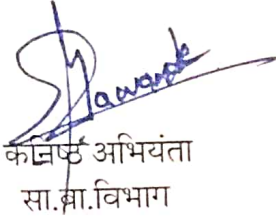 कनिष्ठ अभियंता
सा.बा.विभाग